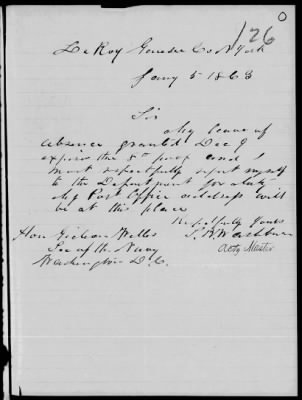 126
Le Roy Genesee Co N York
Jany 5 1863
Sir
My leave of
absence granted Dec 9
expires the 8th prox and I
most respectfully report myself
to the Department for duty
My Post Office address will
be at this place
Respectfully yours
Hon Gideon Welles
Sec of the Navy
Washington D.C.
Actg Master